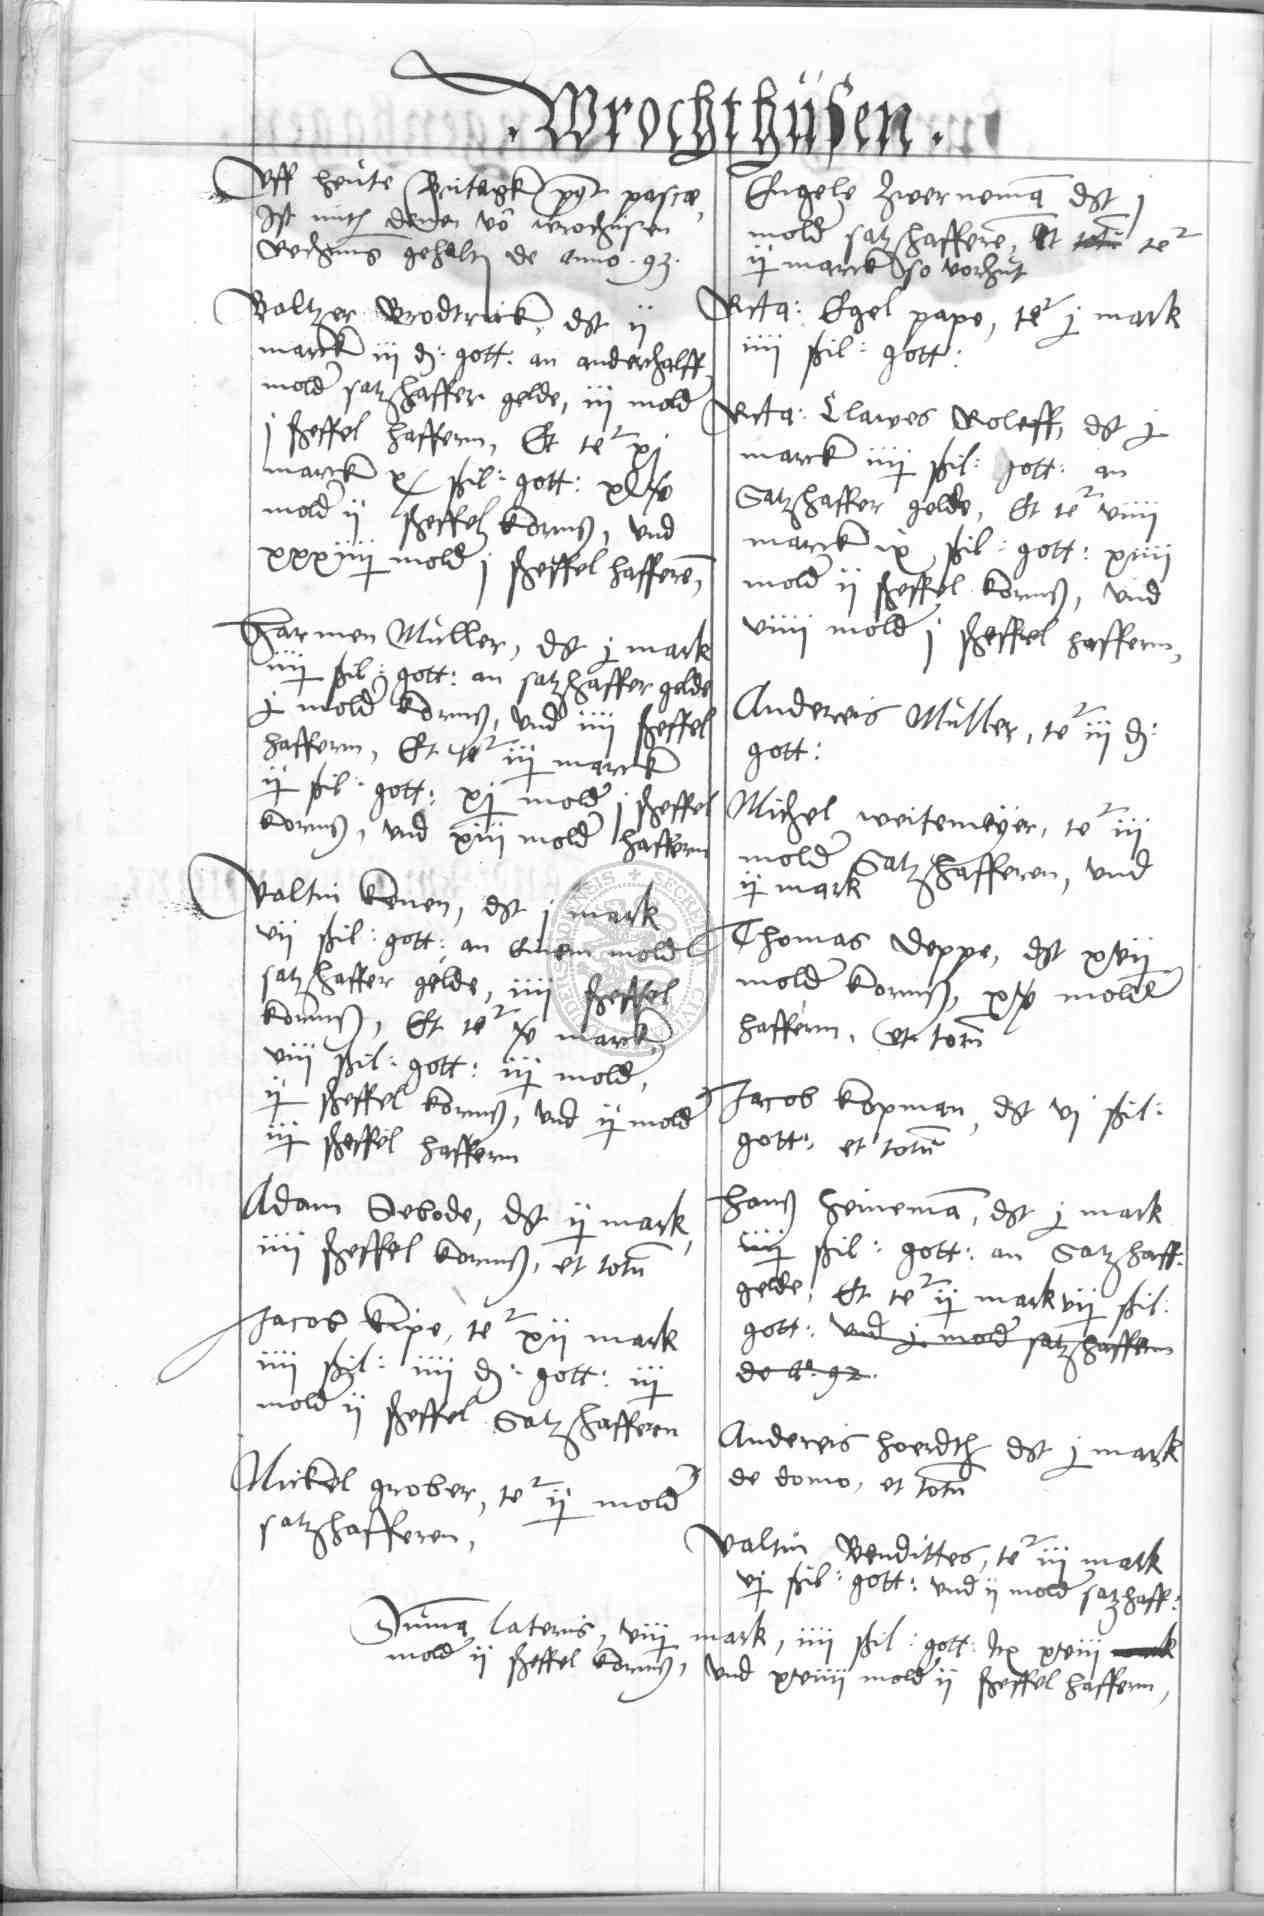 Wrochthüsen.
Uff heute Fritagk post pasce,
Ist mith denen vo wrochüsen
Rechnüs gehalt de Anno .93.
Baltzer Brodtrück, dt ij
marck iij d: gott: an anderhalff
mold satzhaffer gelde, iij mold
j scheffel haffern, Et te^r xj
marck x schil: gott:
mold ij scheffel korns, und
xxxiiij mold j scheffel hafferē,
Harmen Müller, dt j mark
iiij schil: gott: an satzhaffer gelde
j mold korns, und iiij scheffel
haffern, Et te^r iij marck
ij schil: gott: xj mold j scheffel
korns, und xiii mold haffern
Valtin Kenen, dt j mark
vij schil: gott: an einem mold
satzhaffer gelde, iiij scheffel
korns, Et te^r xv marck,
viii schil: gott: iij mold,
ij scheffel korns, und ij mold
iij scheffel haffern
Adam Sebode, dt ij mark,
iiij scheffel korns, et totū
Jacob Kipe, te^r xij mark
iiij schil: iiij d: gott: iij
mold ij scheffel Satzhafferen
Mickel grober, te^r ij mold
satzhafferen,
Engele Zwernemā dt j
mold satzhafferē, Et totū te^r
ij marck so vorhüt
Rcta: Egel pape, te^r j mark
iiii schil: gott:
Rcta: Clawes Roleff, dt j
marck iiij schil: gott: an
Satzhaffer gelde, Et te^r viiii
marck ix schil: gott: xiiii
mold ij scheffel korns, und
viiii mold j scheffel haffern,
Andereis Müller, te^r iij d:
gott:
Michel weitemeyer, te^r iij
mold Satzhafferen, und
ij mark
Thomas Deppe, dt xvij
mold korns, xxv mold
haffern, et totū
Jacob kopman, dt vj schil:
gott:, et totū
Hans Heinemā, dt j mark
iiij schil: gott: an Satzhaff:
gelde, Et te^r ij mark vij schil:
gott: und j mold satzhaffern
de A: 92.
Andereis hoerdth dt j mark
de domo, et totū
Valtin Bendittes, te^r iij mark
vj schil: gott: und ij mold satzhaff:
Suma lateris, viij mark, iiii schil: gott: xviii
mold ij scheffel korns, und xviiii mold ij scheffel haffern,